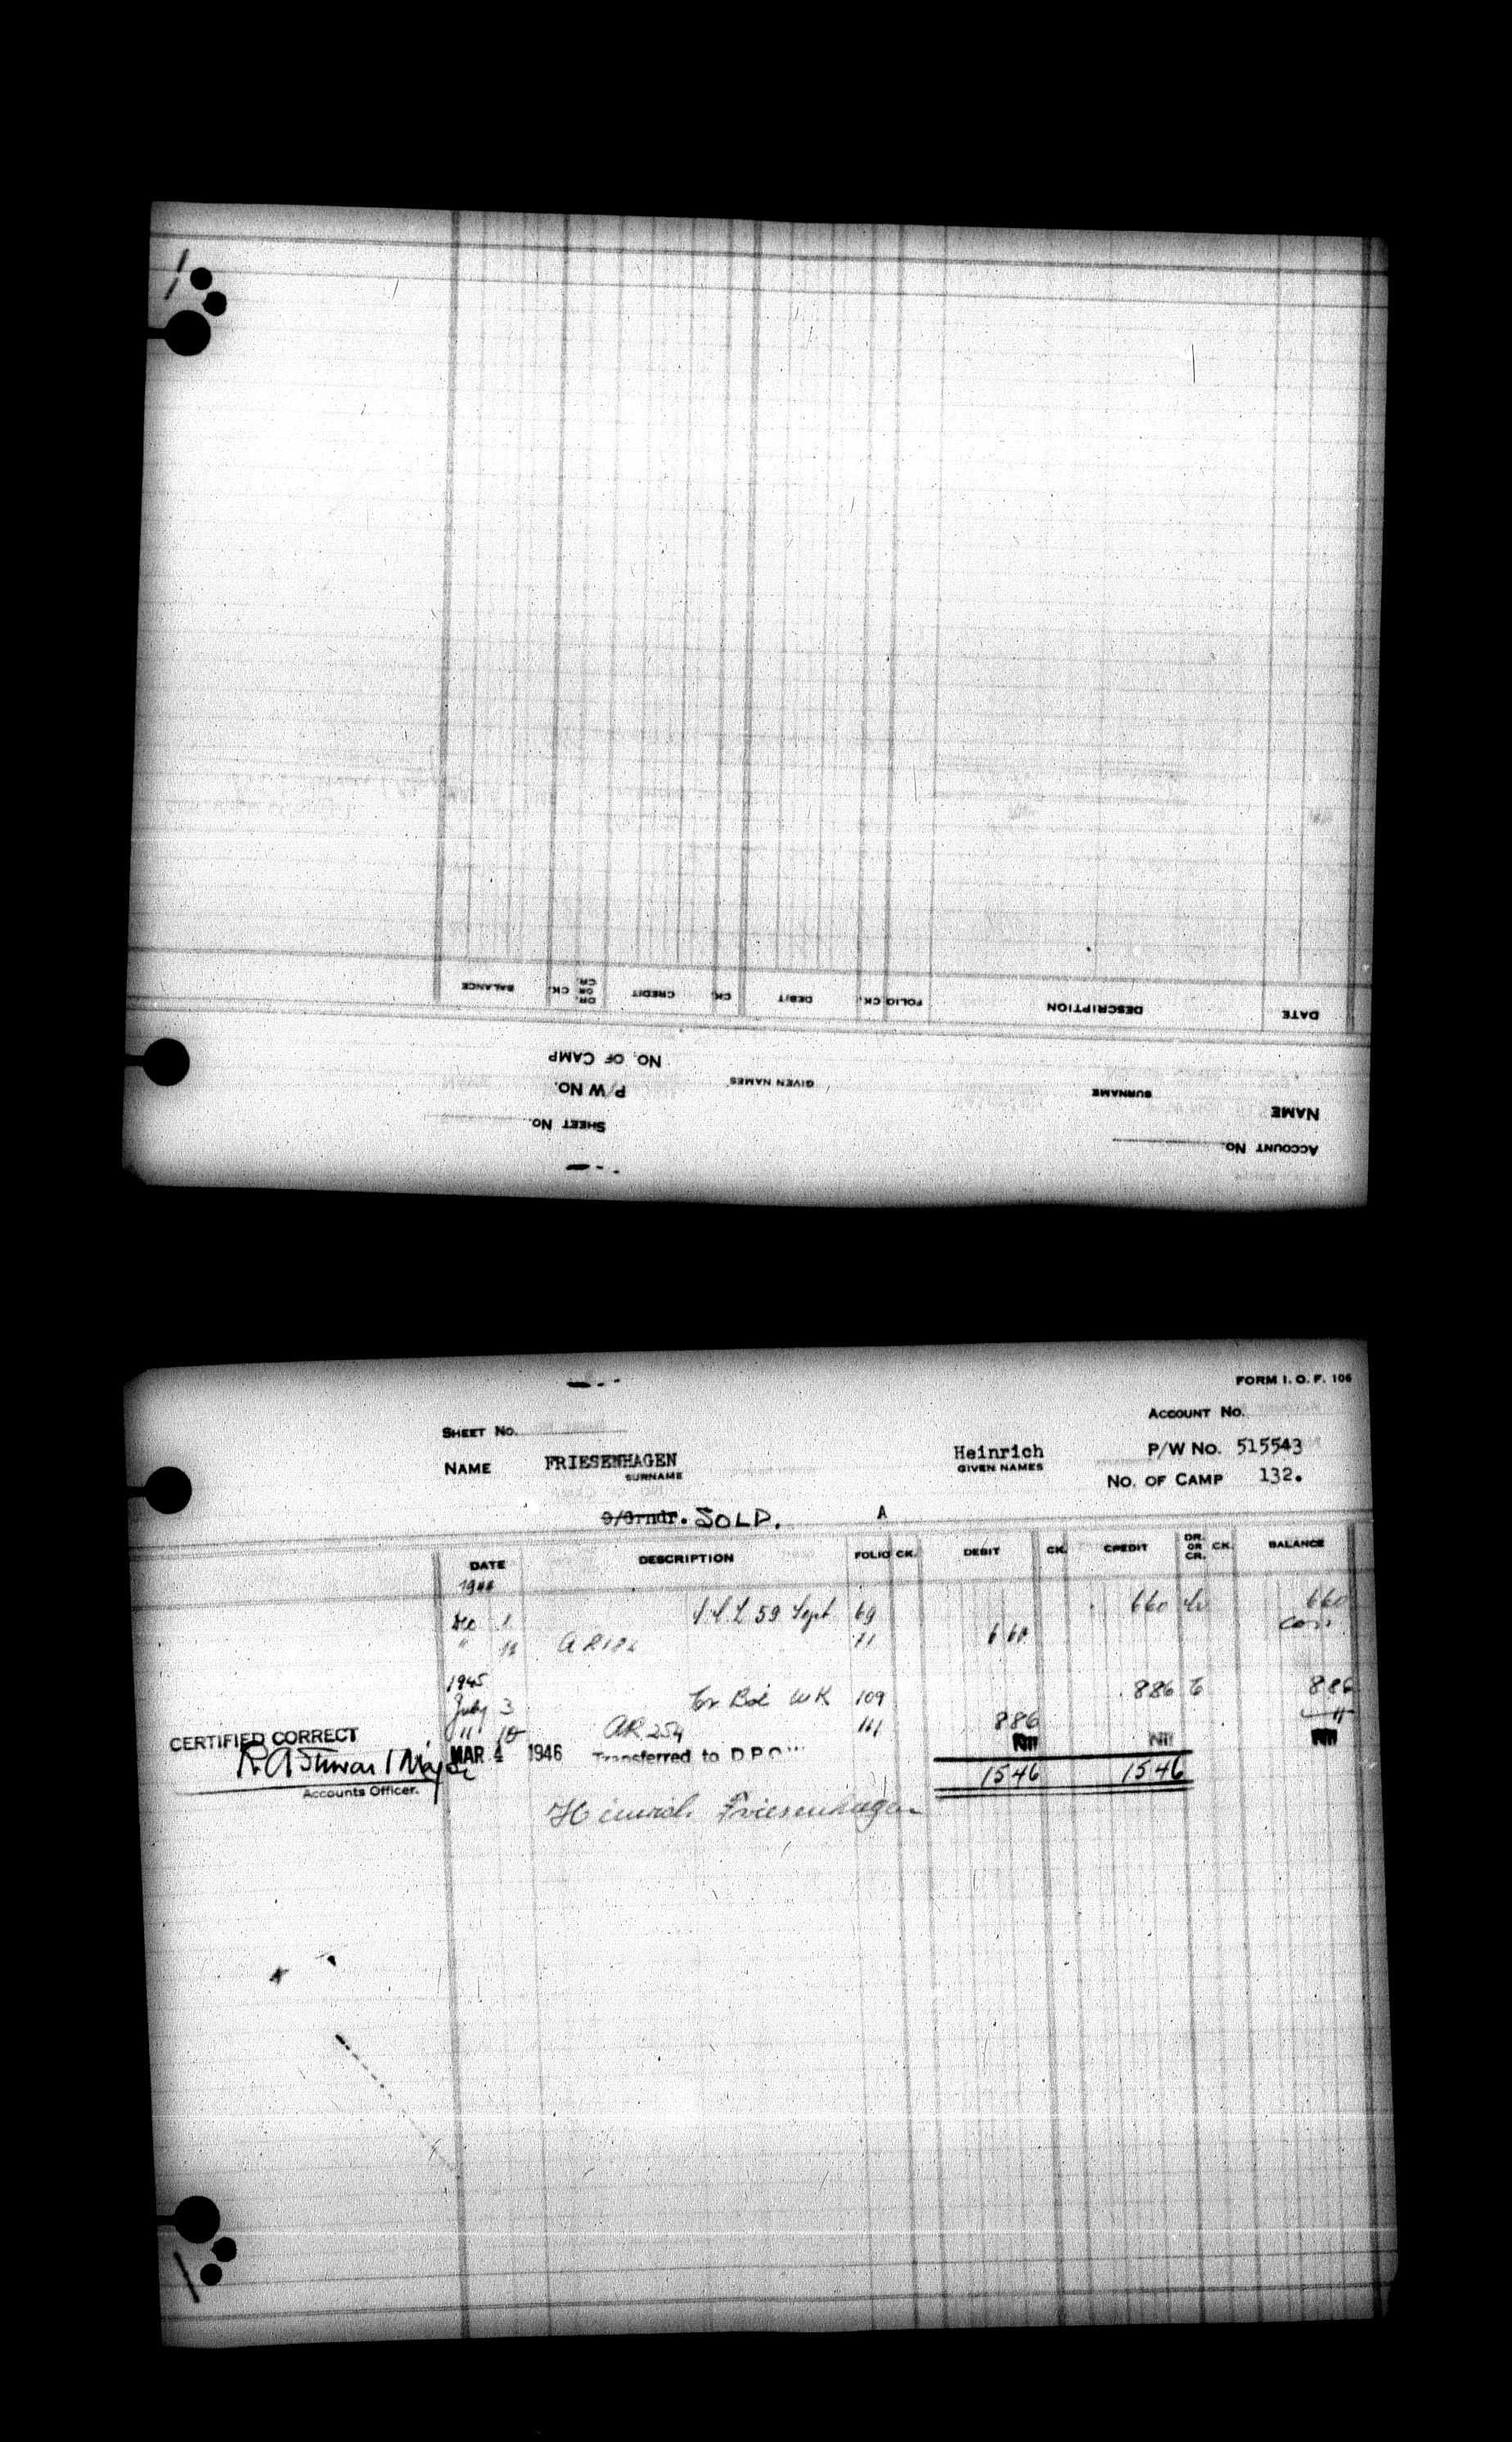 BALANCE CK. DR. OR CR. CREDIT CK. DEBIT CK. FOLIO DESCRIPTION DATE
NO. OF CAMP
P/W NO. GIVEN NAMES SURNAME NAME
SHEET NO. ACCOUNT NO.
FORM I. O. F. 106
SHEET NO. ACCOUNT NO.
NAME FRIESENHAGEN Heinrich P/W NO. 515543
SURNAME GIVEN NAMES NO. OF CAMP 132.
O/Grndr. SOLD. A
DATE DESCRIPTION FOLIO CK. DEBIT CK. CREDIT DR. OR CR. CK. BALANCE
1944
Dec 1 59 Sept 69 660 660
" 11 AR 71 660
1945
July 3 WK 109 886 886
" 10 AR 254 111 886
CERTIFIED CORRECT MAR 4 1946 Transferred to D.P.O. Nil Nil Nil
Major 1546 1546
Accounts Officer.
Heinrich Friesenhagen